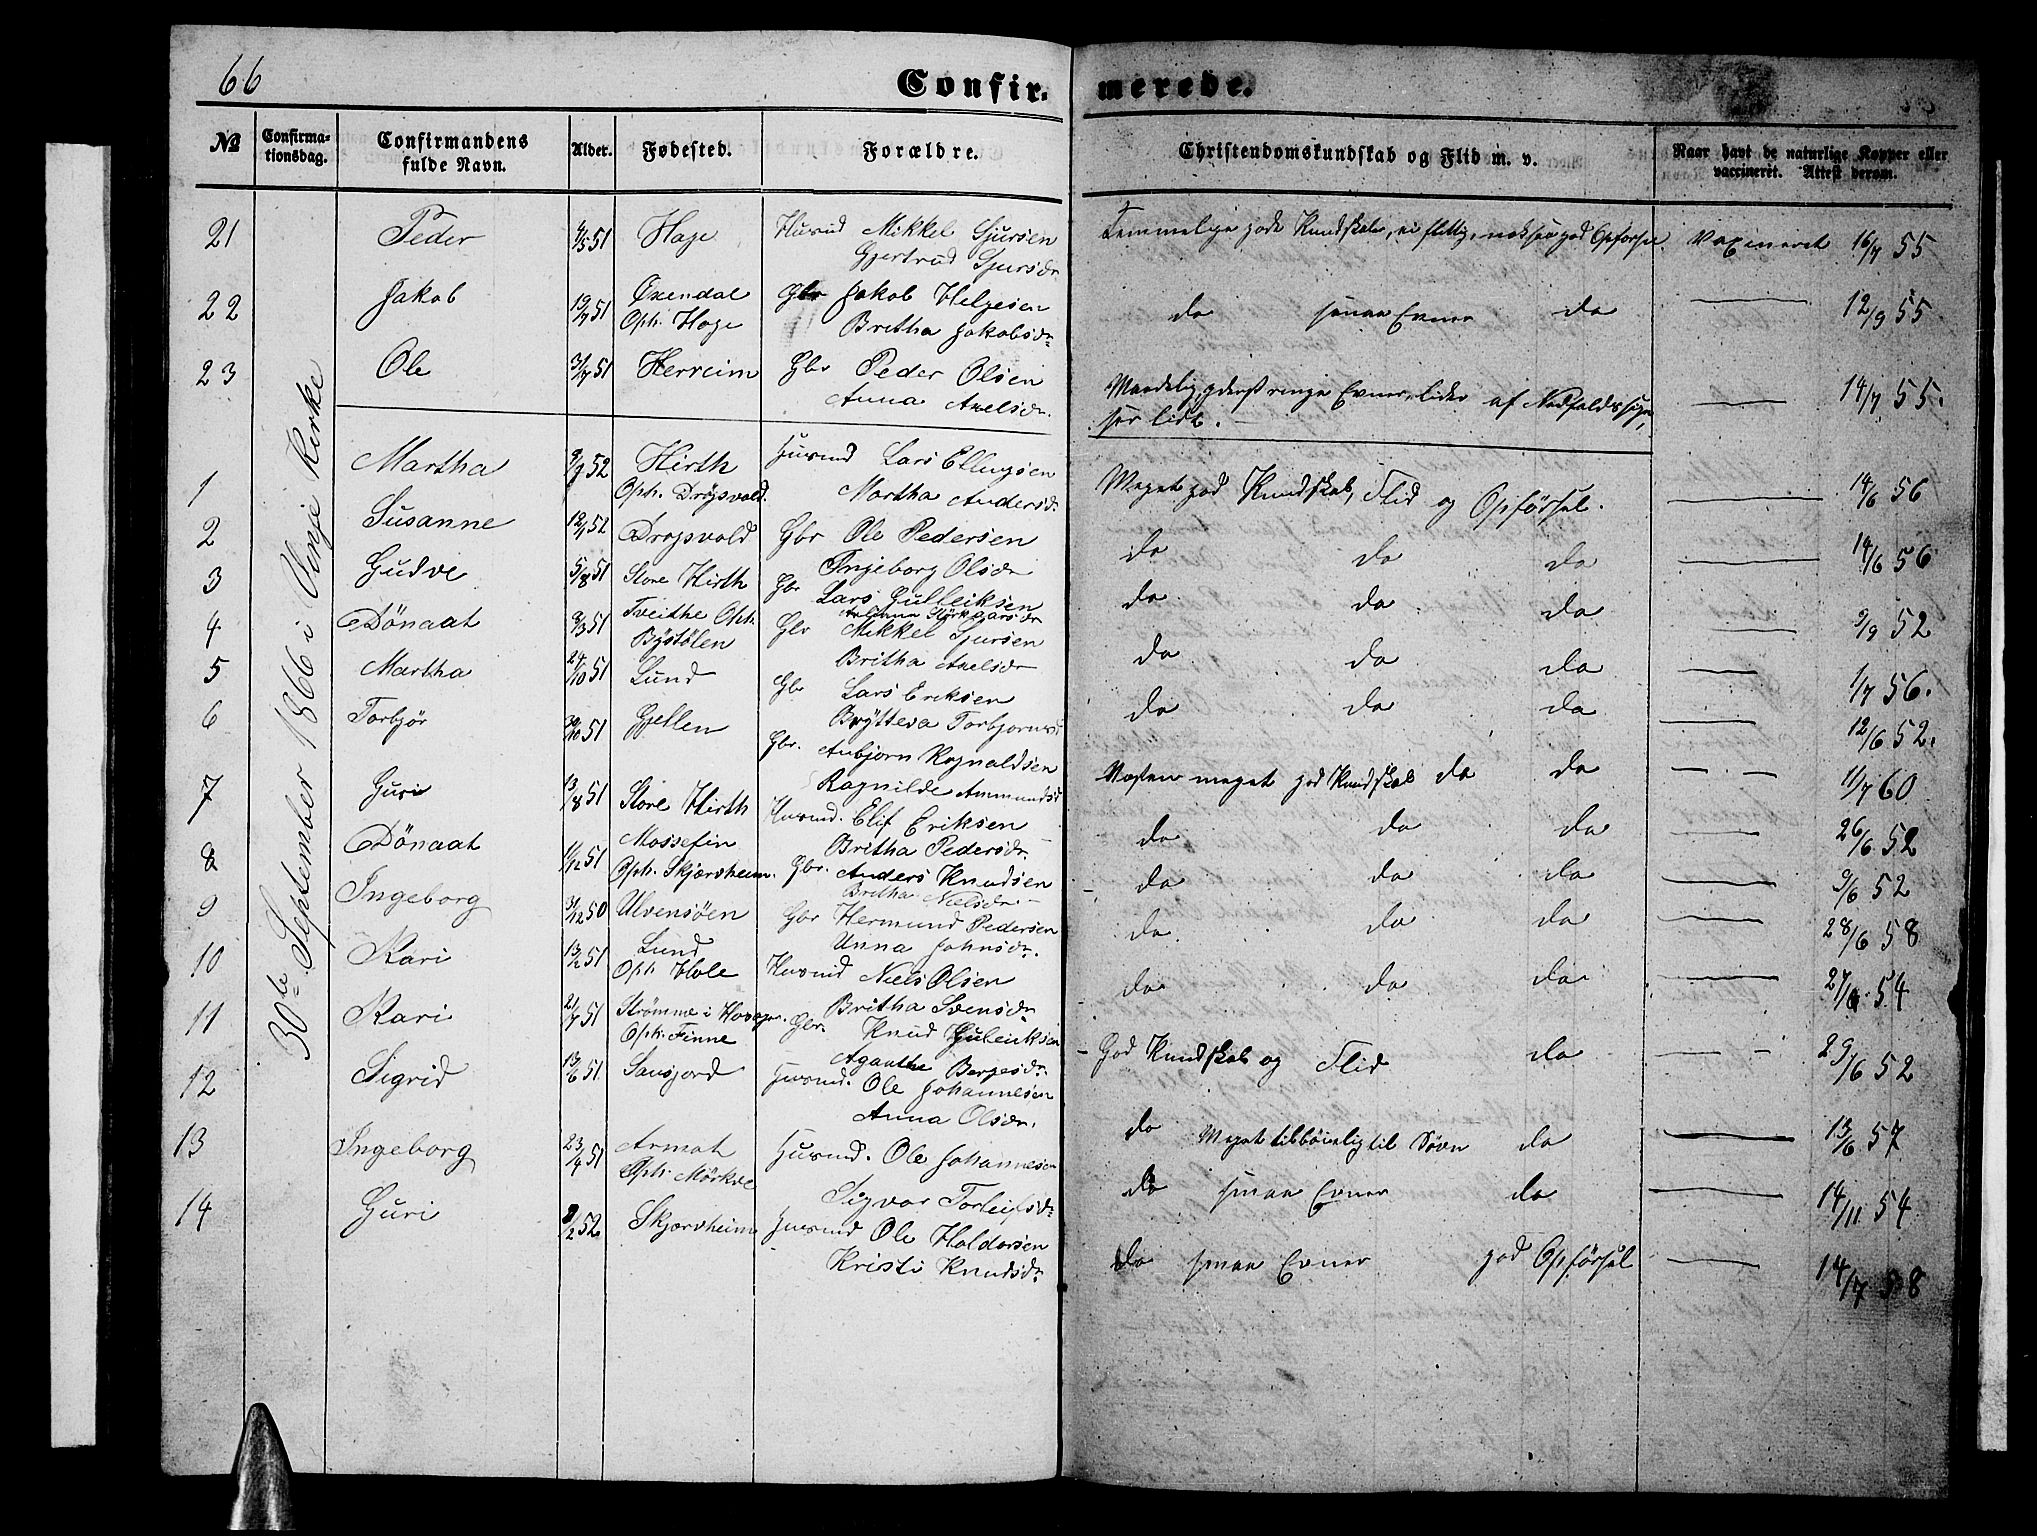 66
Confir-merede.
№ Confirmationsdag. Confirmandens fulde Navn. Alder. Fødested. Forældre. Christendomskundskab og Flid m. v. Naar havt de naturlige Kopper eller vaccineret. Attest derom.
30te September 1866 i Vinje Kirke
21 Peder 4/5 51 Hage Husmd Mikkel Sjursen
Gjertrud Sjursdr
Temmelige gode Kundskaber, ei flittig, noksaa god Opførsel Vaxineret 16/7 55
22 Jakob 19/7 51 Oxendal Gbr Jakob Helgesen
Oph. Hage Britha Jakobsdr
do smaa Evner do 12/9 55
23 Ole 31/7 51 Herreim Gbr Peder Olsen
Anna Axelsdr.
Maadelig, yderst ringe Evner, lider af Nedfaldssyge, 14/7 55.
ser lidt.
1 Martha 52 Hirth Husmd Lars Ellingsen
Oph. Drögsvold Martha Andersdr
Meget god Kundskab, Flid og Opførsel. 14/6 56
2 Susanne 12/1 52 Drogsvold Gbr Ole Pedersen
Ingeborg Olsdr
do do do 14/6 56
3 Gudve 5/8 51 Store Hirth Gbr Lars Gulleiksen
Styrkaarsdr
do do do 9/9 52
4 Dönaat 9/3 51 Tveithe Oph. Gbr Mikkel Sjursen
Bystölen Britha Axelsdr
do do do 1/7 56.
5 Martha 24/10 51 Lund Gbr Lars Eriksen
Brytteva Torbjornsd
do do do 12/6 52.
6 Torbjör 30/10 51 Gjellen Gbr. Anbjörn Rognaldsen
Ragnilde Ammundsd
Næsten meget god Kundskab do do 11/7 60
7 Guri 13/8 51 Store Hirth Husmd. Elif Eriksen
Britha Pedersdr.
do do do 26/6 52
8 Dönaat 11/12 51 Mossefin Gbr. Anders Knudsen
Oph. Skjærvheim. Britha Nielsdr
do do do 9/6 52
9 Ingeborg 31/12 50 Ulvensöen Gbr Hermund Pedersen
Unna Johnsdr.
do do do 28/6 58
10 Kari 13/2 51 Lund Husmd Niels Olsen
Oph Hole Britha Svensdr
do do do 27/6 54
11 Kari 21/7 51 Strömme i Gbr. Knud Guleiksen
Oph. Finne Agaathe Bergesdr.
God Kundskab og Flid do 29/6 52
12 Sigrid 13/6 51 Husmd. Ole Johannesen
Anna Olsdr.
do Meget tilböielig til Sövn do 13/6 57
13 Ingeborg 23/4 51 Armot Husmd. Ole Johannesen
Oph. Mörkve Torleifsdr
do smaa Evner do 14/11 54
14 Guri 52 Skjærvheim Husmd Ole Haldorsen
Kristi Knudsdr
do smaa Evner god Opförsel 14/7 58